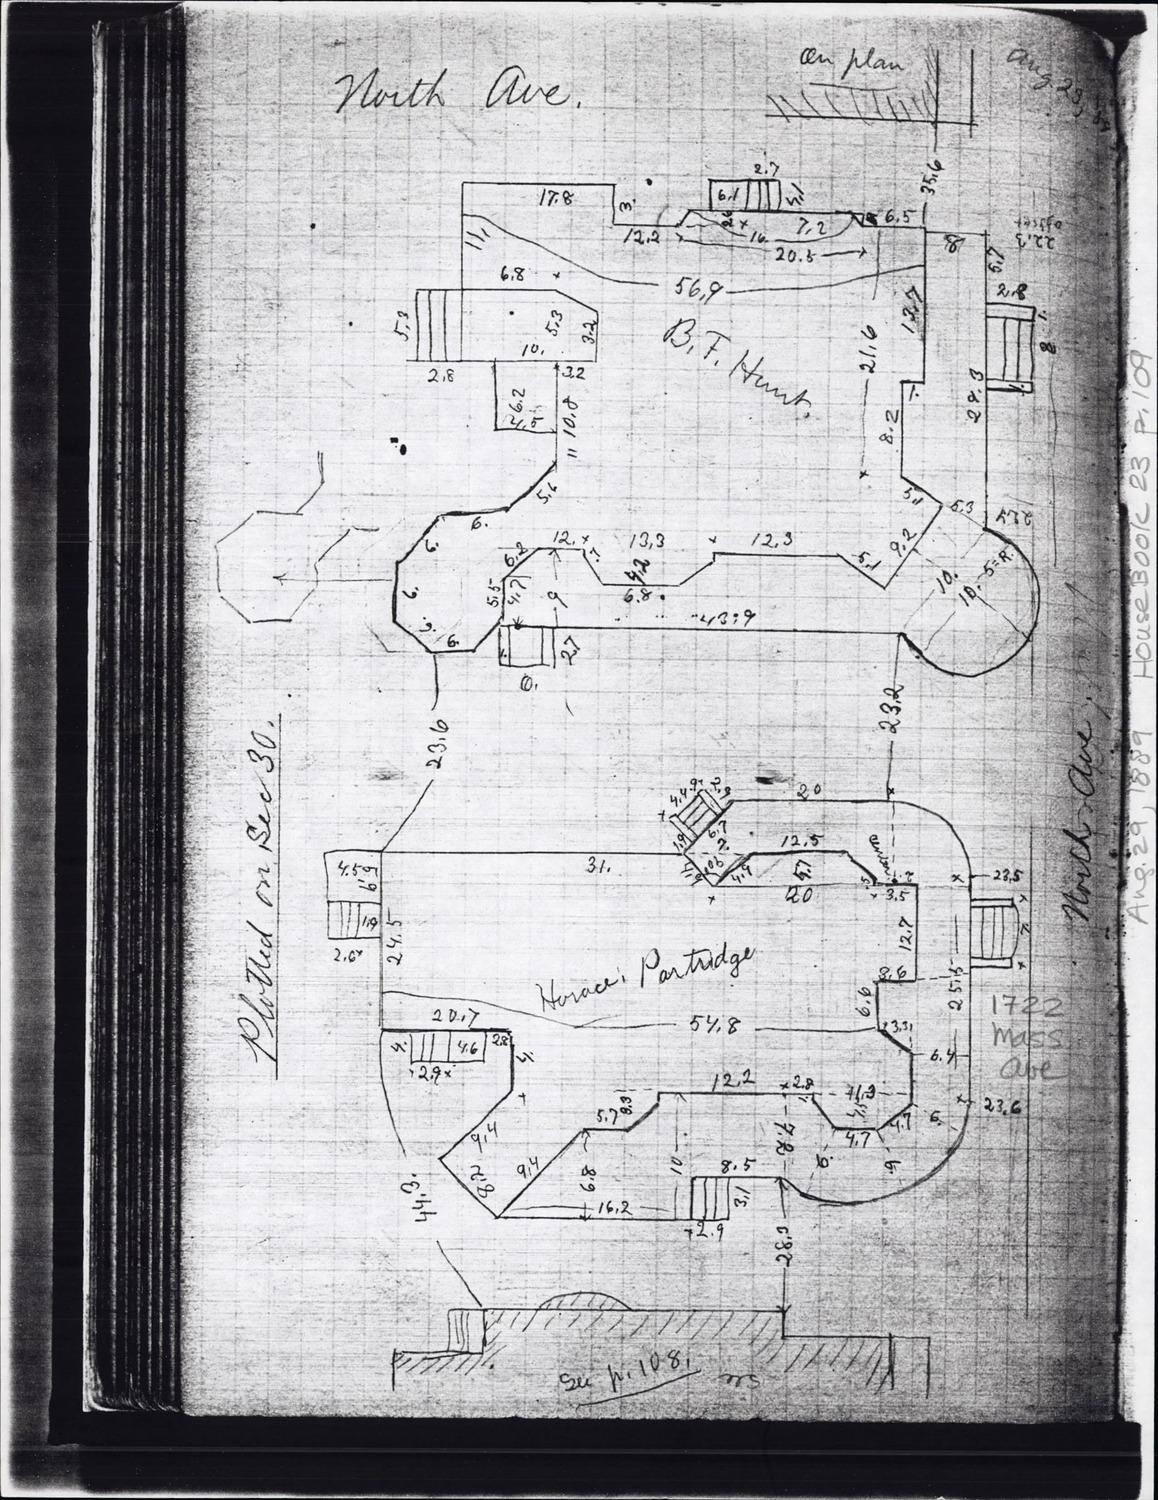 North Ave.
On plan
Aug 23,
35.6
2.7
17.8
3.
6.1
5.1
7.2
6.5
12.2
16.
20.5
8
22.3
offset
5.7
11.
6.8
56.9
2.8
5.3
5.3
3.2
13.7
8
B. F. Hunt.
21.6
10.
2.8
3.2
1.
28.3
6.2
4.5
10.8
8.2
5.6
5.1
5.3
6.
9.2
12.
13.3
12.3
6.2
5.1
10.
10.
5=R.
6.
5.5
4.7
4.2
9
6.8
6.
6.
43.9
2.7
23.2
23.6
Plotted on Sec 30.
North Ave.
20
4.4
6.7
31.
12.5
4.5
6.9
4.9
5.7
23.5
20
3.5
1.9
12.7
7.
2.6
24.5
8.6
Horace Partridge
6.6
25.5
1722
Mass
Ave
20.7
54.8
3.3
4.
4.6
2.8
4.
6.4
2.9
12.2
2.8
11.3
23.6
5.7
8.3
4.7
4.7
6.
9.4
7.8
8.2
9.4
6.8
10
8.5
6.
6
44.3
16.2
3.1
2.9
28.5
See p. 108.
see
Aug. 29, 1889 House Book 23 p. 109